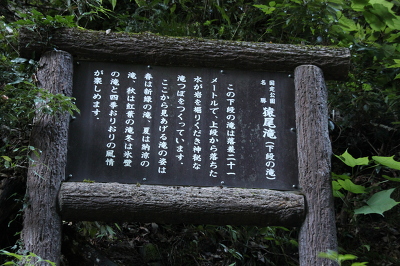 国定公園
名勝 猿尾滝(下段の滝)
この下段の滝は落差二十一
メートルで、上段から落ちた
水が岩を掘りくだき神秘な
滝つぼをつくっています。
ここから見あげる滝の姿は
春は新緑の滝、夏は納涼の
滝、秋は紅葉の滝冬は氷壁
の滝と四季おりおりの風情
が楽しめます。